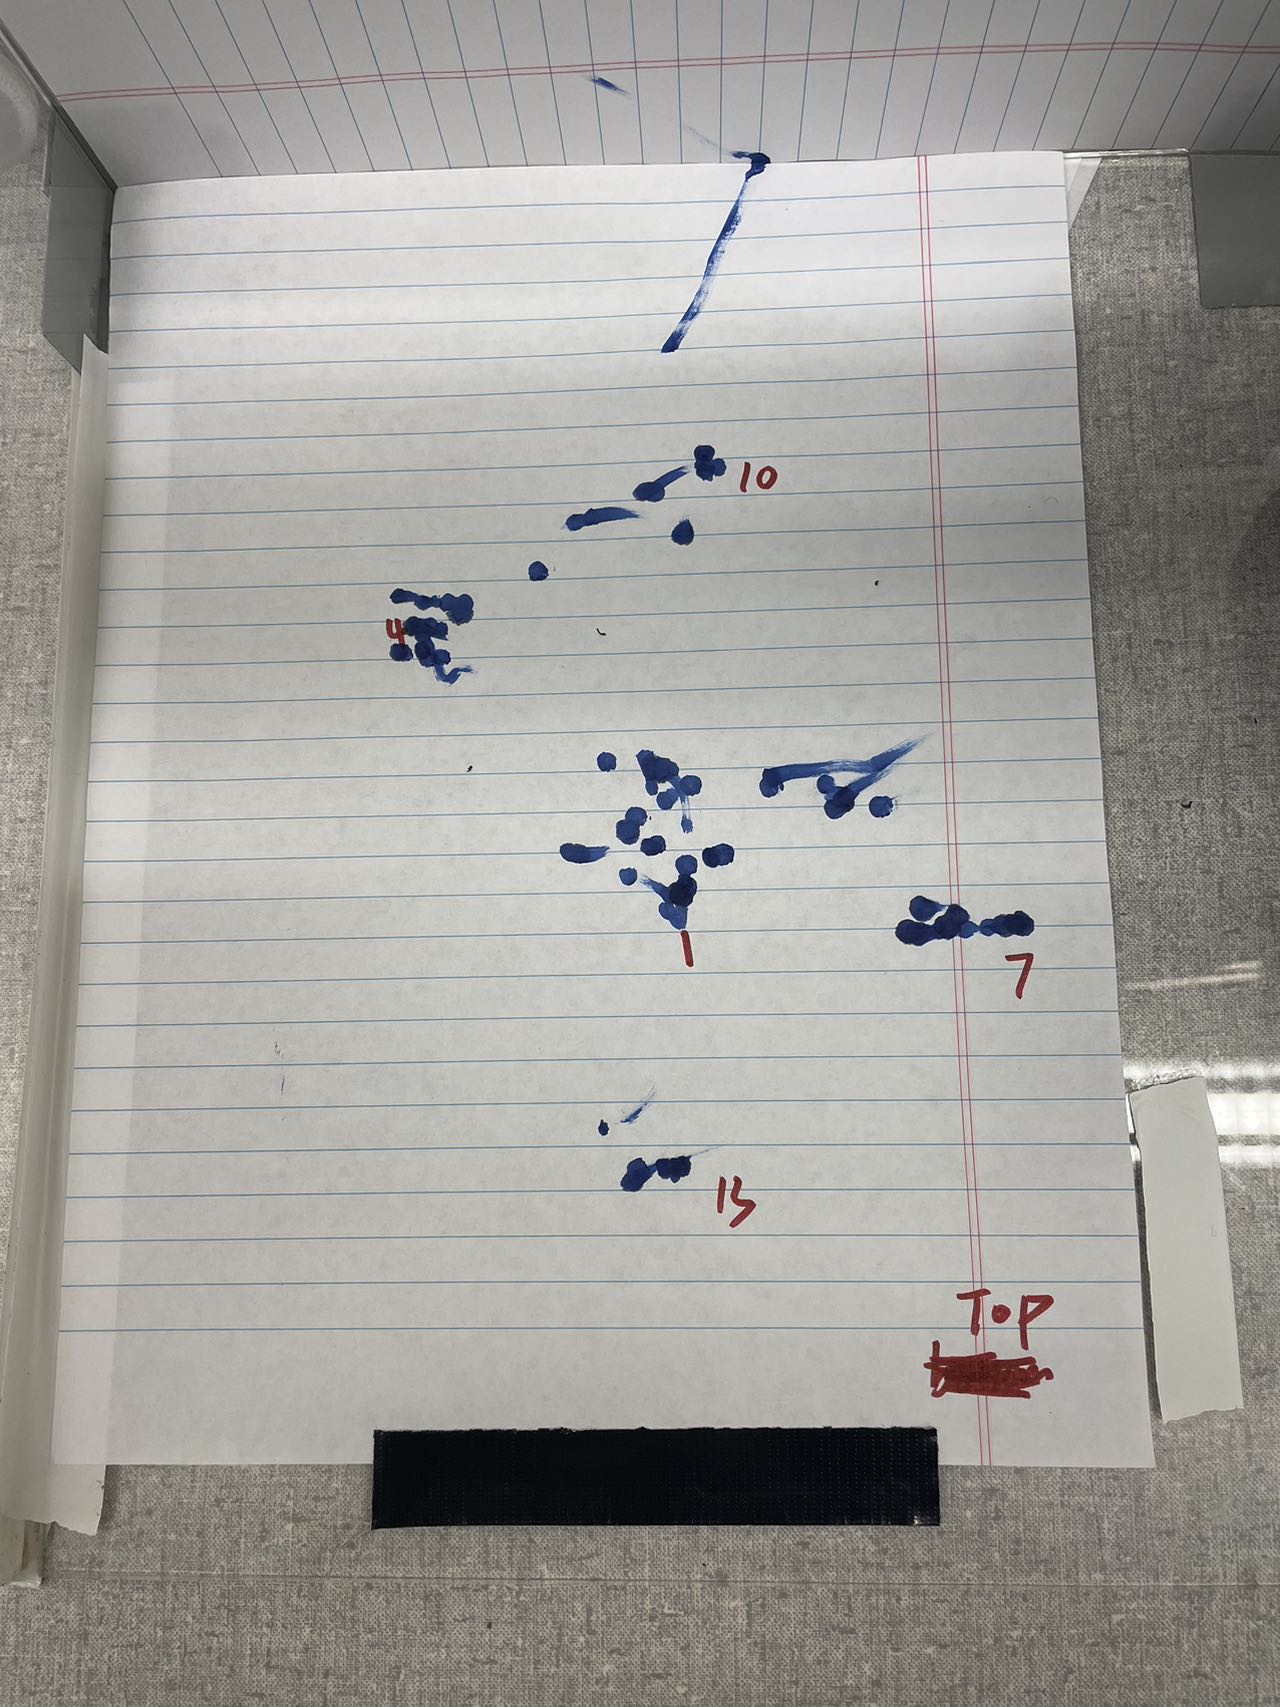 10
4
1
7
13
TOP